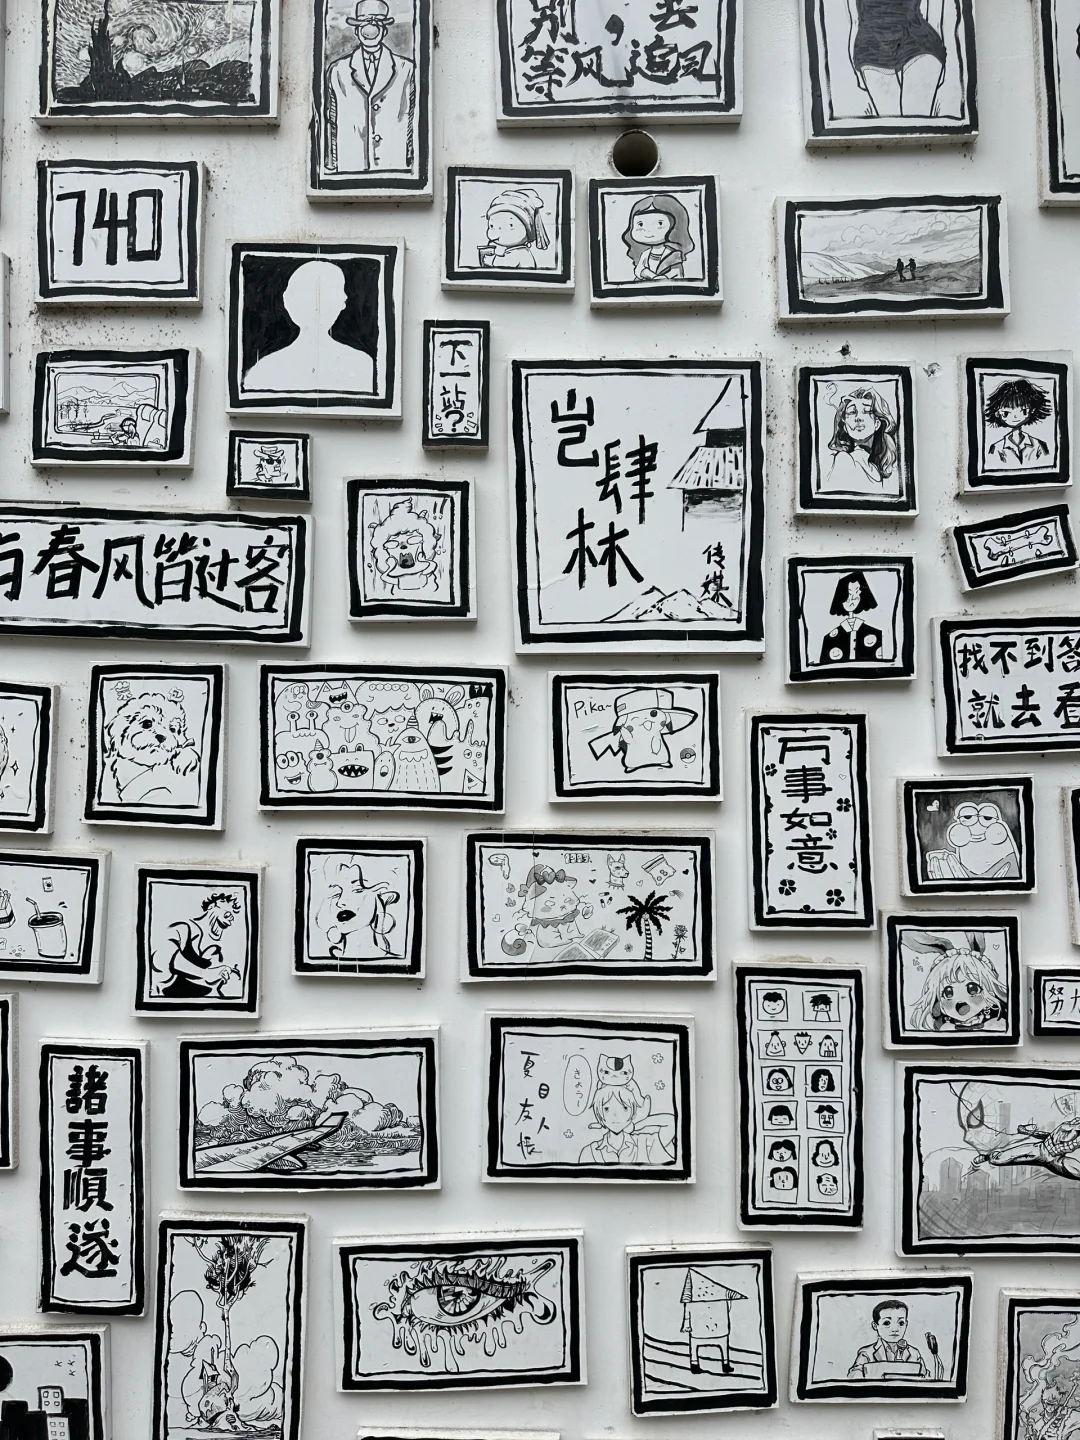 别,去
等风追风
740
下一站?
岂肆林
传媒
与春风皆过客
找不到答
就去看
Pika~
万事如意
努力
諸事順遂
夏目友人帐
きょうー